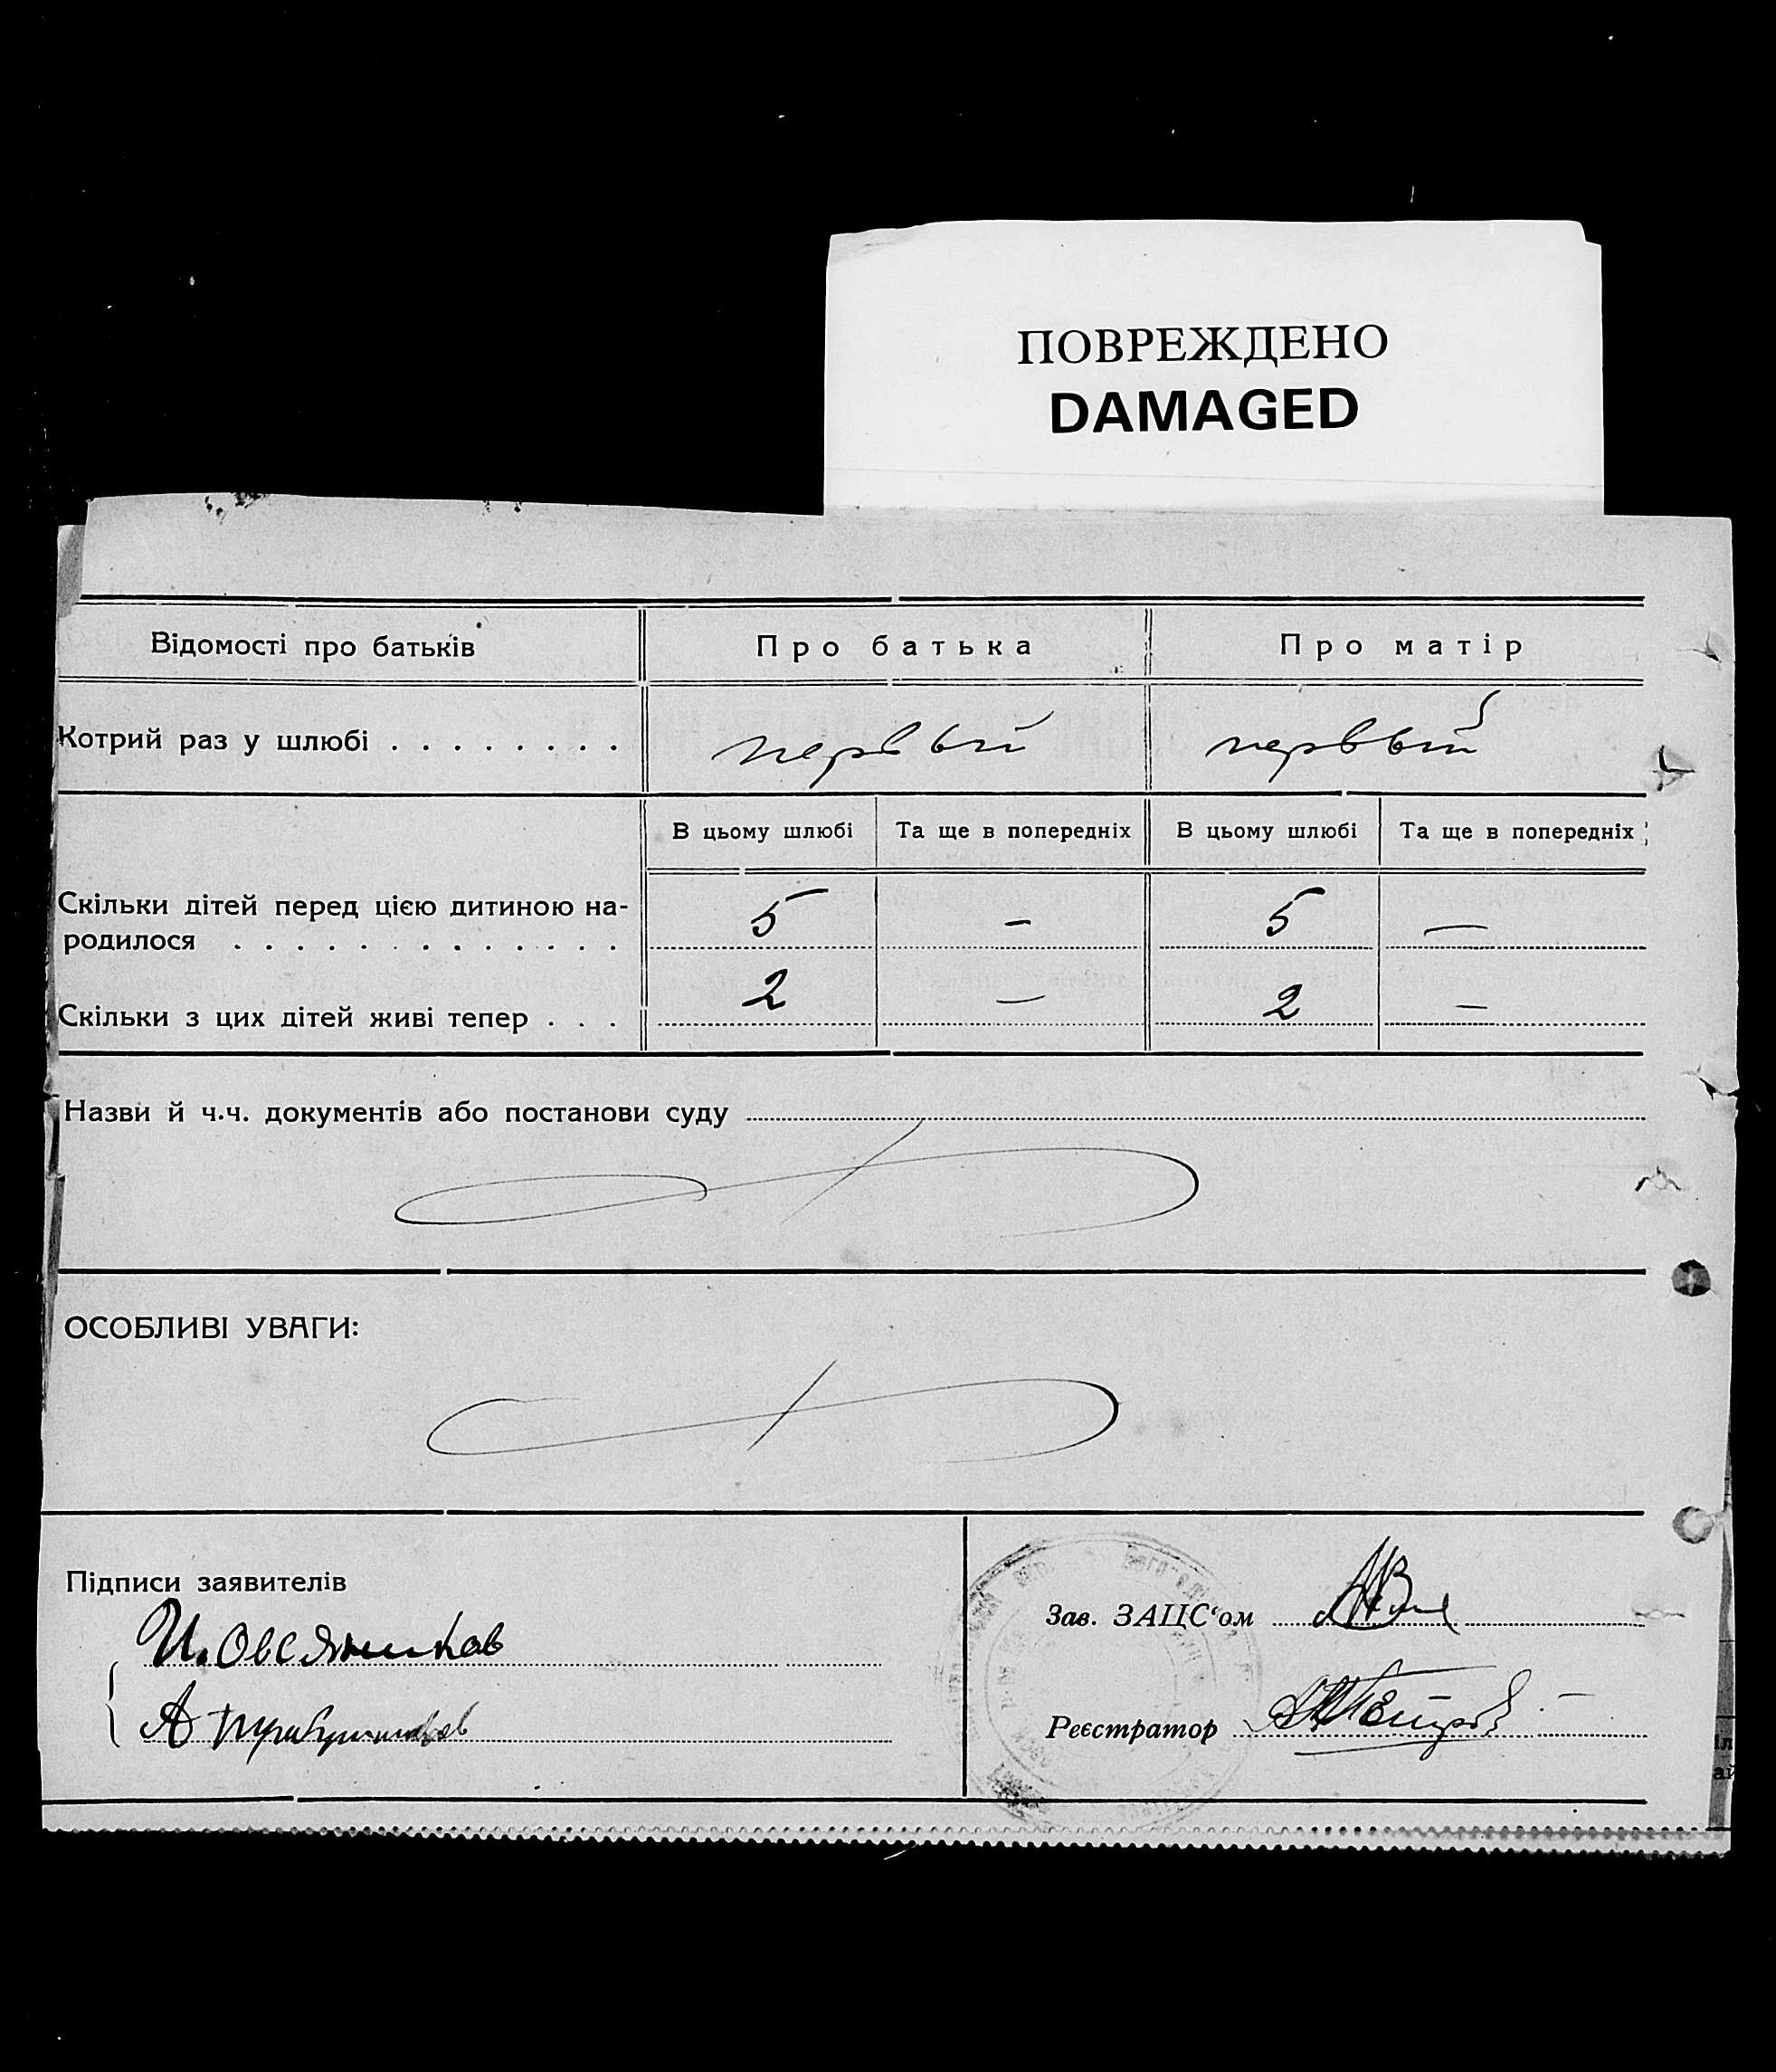 ПОВРЕЖДЕНО
DAMAGED
Відомості про батьків
Про батька
Про матір
Котрий раз у шлюбі . . . . . . . .
первый
первый
В цьому шлюбі
Та ще в попередніх
В цьому шлюбі
Та ще в попередніх
Скільки дітей перед цією дитиною на-
родилося . . . . . . . . . . . . .
5
–
5
—
Скільки з цих дітей живі тепер . . .
2
—
2
—
Назви й ч.ч. документів або постанови суду
ОСОБЛИВІ УВАГИ:
Підписи заявителів
И. Овсянников
А
Зав. ЗАЦС‘ом
Реєстратор